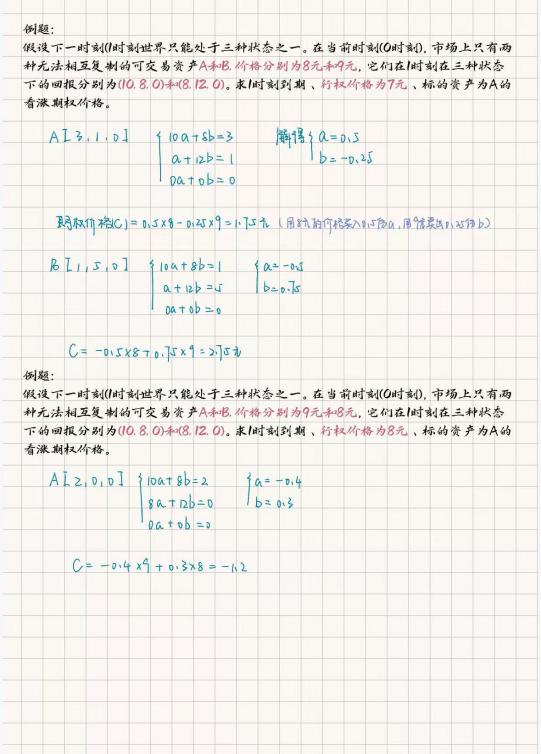 例题:
假设下一时刻(1时刻)世界只能处于三种状态之一。在当前时刻(0时刻), 市场上只有两
种无法相互复制的可交易资产A和B, 价格分别为8元和9元, 它们在1时刻在三种状态
下的回报分别为(10, 8, 0)和(8, 12, 0)。求1时刻到期、行权价格为7元、标的资产为A的
看涨期权价格。
A [3, 1, 0] { 10a+8b=3 解得 { a=0.5
a+12b=1 b=-0.25
0a+0b=0
期权价格(C)=0.5×8-0.25×9=1.75元 (用8元的价格买入0.5份a, 用9元卖出0.25份b)
B [1, 5, 0] { 10a+8b=1 { a=-0.5
a+12b=5 b=0.75
0a+0b=0
C=-0.5×8+0.75×9=2.75元
例题:
假设下一时刻(1时刻)世界只能处于三种状态之一。在当前时刻(0时刻), 市场上只有两
种无法相互复制的可交易资产A和B, 价格分别为9元和8元, 它们在1时刻在三种状态
下的回报分别为(10, 8, 0)和(8, 12, 0)。求1时刻到期、行权价格为8元、标的资产为A的
看涨期权价格。
A [2, 0, 0] { 10a+8b=2 { a=-0.4
8a+12b=0 b=0.3
0a+0b=0
C=-0.4×9+0.3×8=-1.2